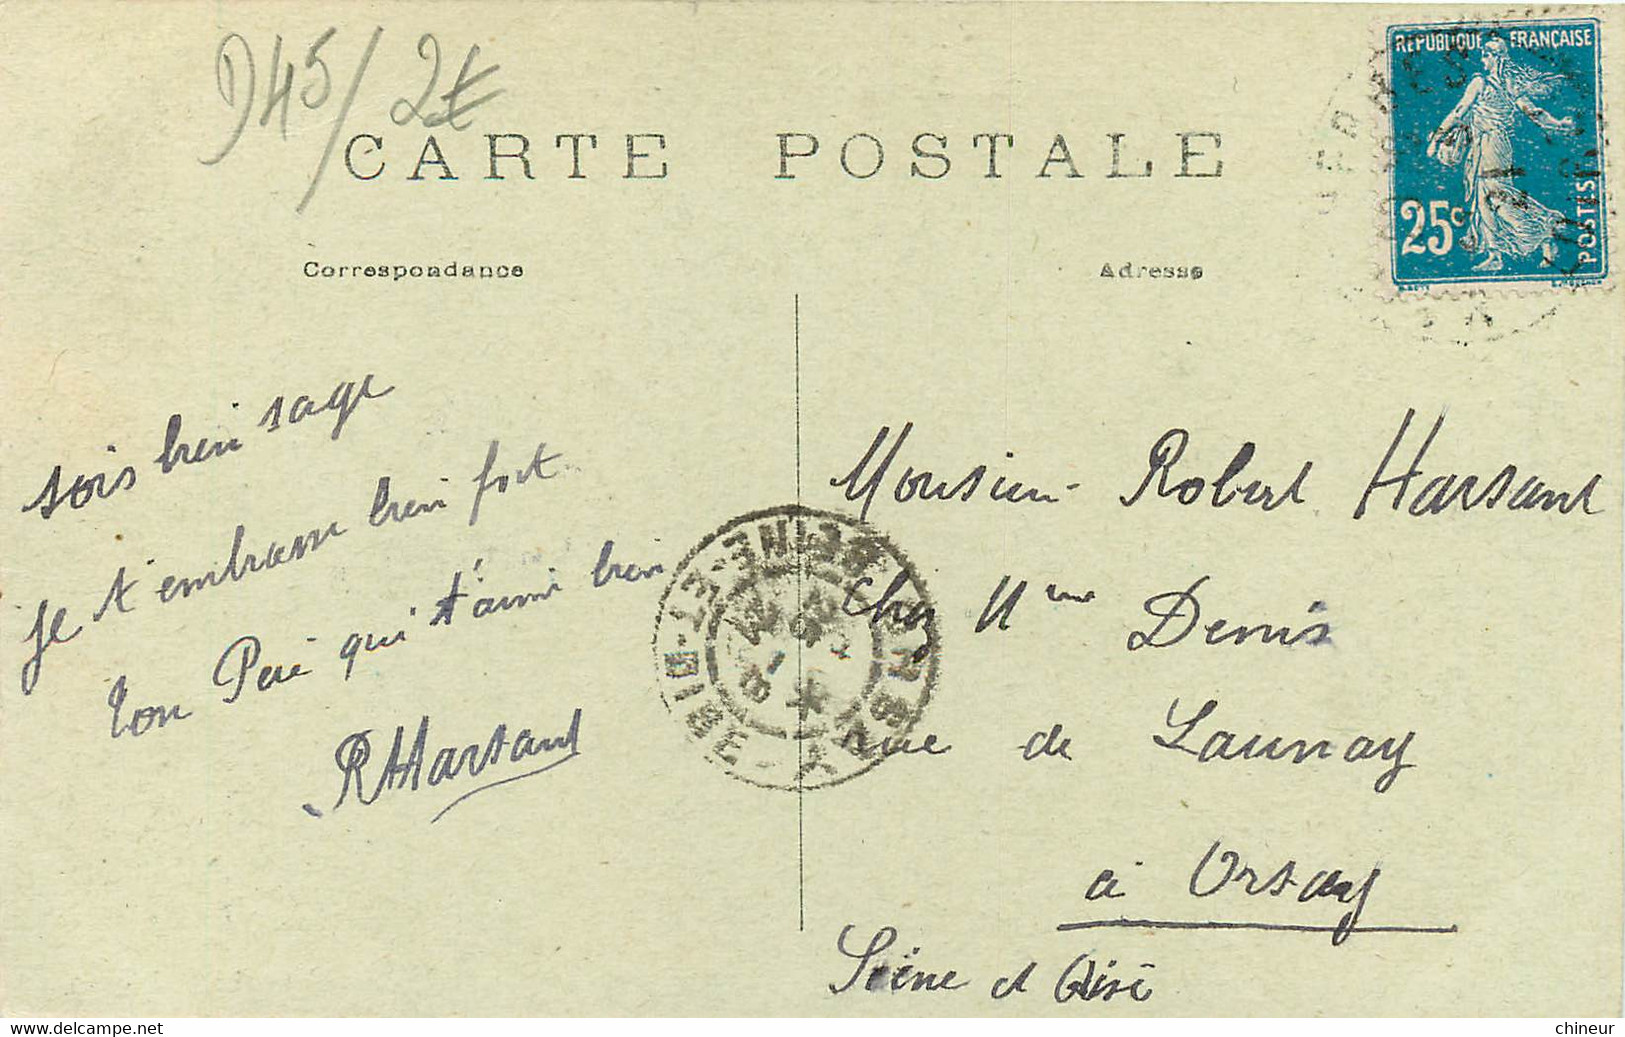 D45/2€
CARTE POSTALE
Correspondance
Adresse
REPUBLIQUE FRANÇAISE
25c
POSTES
21
sois bien sage
Je t'embrasse bien fort
ton Père qui t'aime bien
RHarsant
Monsieur Robert Harsant
Chez Mme Denis
rue de Launay
à Orsay
Seine et Oise
SEINE-ET-OISE
chineur